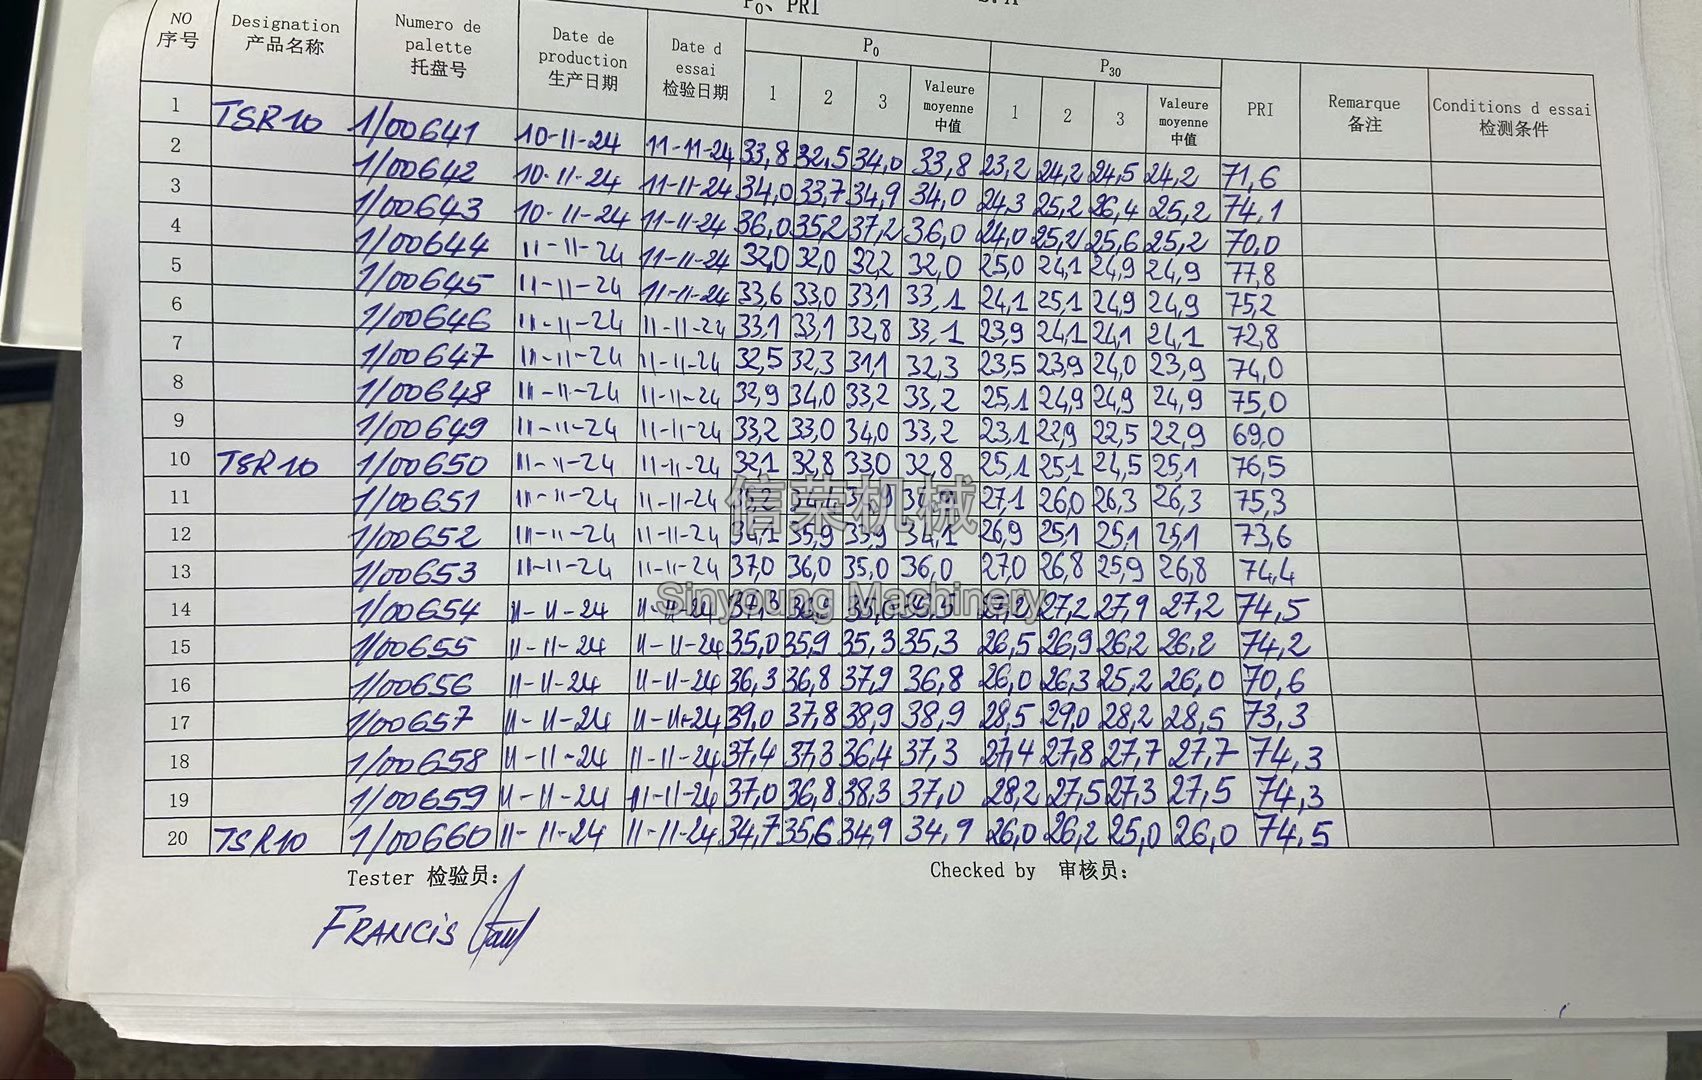 P0、PRI
NO 序号 Designation 产品名称 Numero de palette 托盘号 Date de production 生产日期 Date d essai 检验日期 P0 P30 PRI Remarque 备注 Conditions d essai 检测条件
1 2 3 Valeure moyenne 中值 1 2 3 Valeure moyenne 中值
1 TSR10 1/00641 10-11-24 11-11-24 33,8 32,5 34,0 33,8 23,2 24,2 24,5 24,2 71,6
2 1/00642 10-11-24 11-11-24 34,0 33,7 34,9 34,0 24,3 25,2 26,4 25,2 74,1
3 1/00643 10-11-24 11-11-24 36,0 35,2 37,2 36,0 24,0 25,2 25,6 25,2 70,0
4 1/00644 11-11-24 11-11-24 32,0 32,0 32,2 32,0 25,0 24,1 24,9 24,9 77,8
5 1/00645 11-11-24 11-11-24 33,6 33,0 33,1 33,1 24,1 25,1 24,9 24,9 75,2
6 1/00646 11-11-24 11-11-24 33,1 33,1 32,8 33,1 23,9 24,1 24,1 24,1 72,8
7 1/00647 11-11-24 11-11-24 32,5 32,3 31,1 32,3 23,5 23,9 24,0 23,9 74,0
8 1/00648 11-11-24 11-11-24 32,9 34,0 33,2 33,2 25,1 24,9 24,9 24,9 75,0
9 1/00649 11-11-24 11-11-24 33,2 33,0 34,0 33,2 23,1 22,9 22,5 22,9 69,0
10 TSR10 1/00650 11-11-24 11-11-24 32,1 32,8 33,0 32,8 25,1 25,1 24,5 25,1 76,5
11 1/00651 11-11-24 11-11-24 27,1 26,0 26,3 26,3 75,3
12 1/00652 11-11-24 11-11-24 34,1 35,9 33,9 34,1 26,9 25,1 25,1 25,1 73,6
13 1/00653 11-11-24 11-11-24 37,0 36,0 35,0 36,0 27,0 26,8 25,9 26,8 74,4
14 1/00654 11-11-24 11-11-24 37,3 27,2 27,2 27,9 27,2 74,5
15 1/00655 11-11-24 11-11-24 35,0 35,9 35,3 35,3 26,5 26,9 26,2 26,2 74,2
16 1/00656 11-11-24 11-11-24 36,3 36,8 37,9 36,8 26,0 26,3 25,2 26,0 70,6
17 1/00657 11-11-24 11-11-24 39,0 37,8 38,9 38,9 28,5 29,0 28,2 28,5 73,3
18 1/00658 11-11-24 11-11-24 37,4 37,3 36,4 37,3 27,4 27,8 27,7 27,7 74,3
19 1/00659 11-11-24 11-11-24 37,0 36,8 38,3 37,0 28,2 27,5 27,3 27,5 74,3
20 TSR10 1/00660 11-11-24 11-11-24 34,7 35,6 34,9 34,9 26,0 26,2 25,0 26,0 74,5
信荣机械
Sinyoung Machinery
Tester 检验员: Checked by 审核员:
FRANCIS